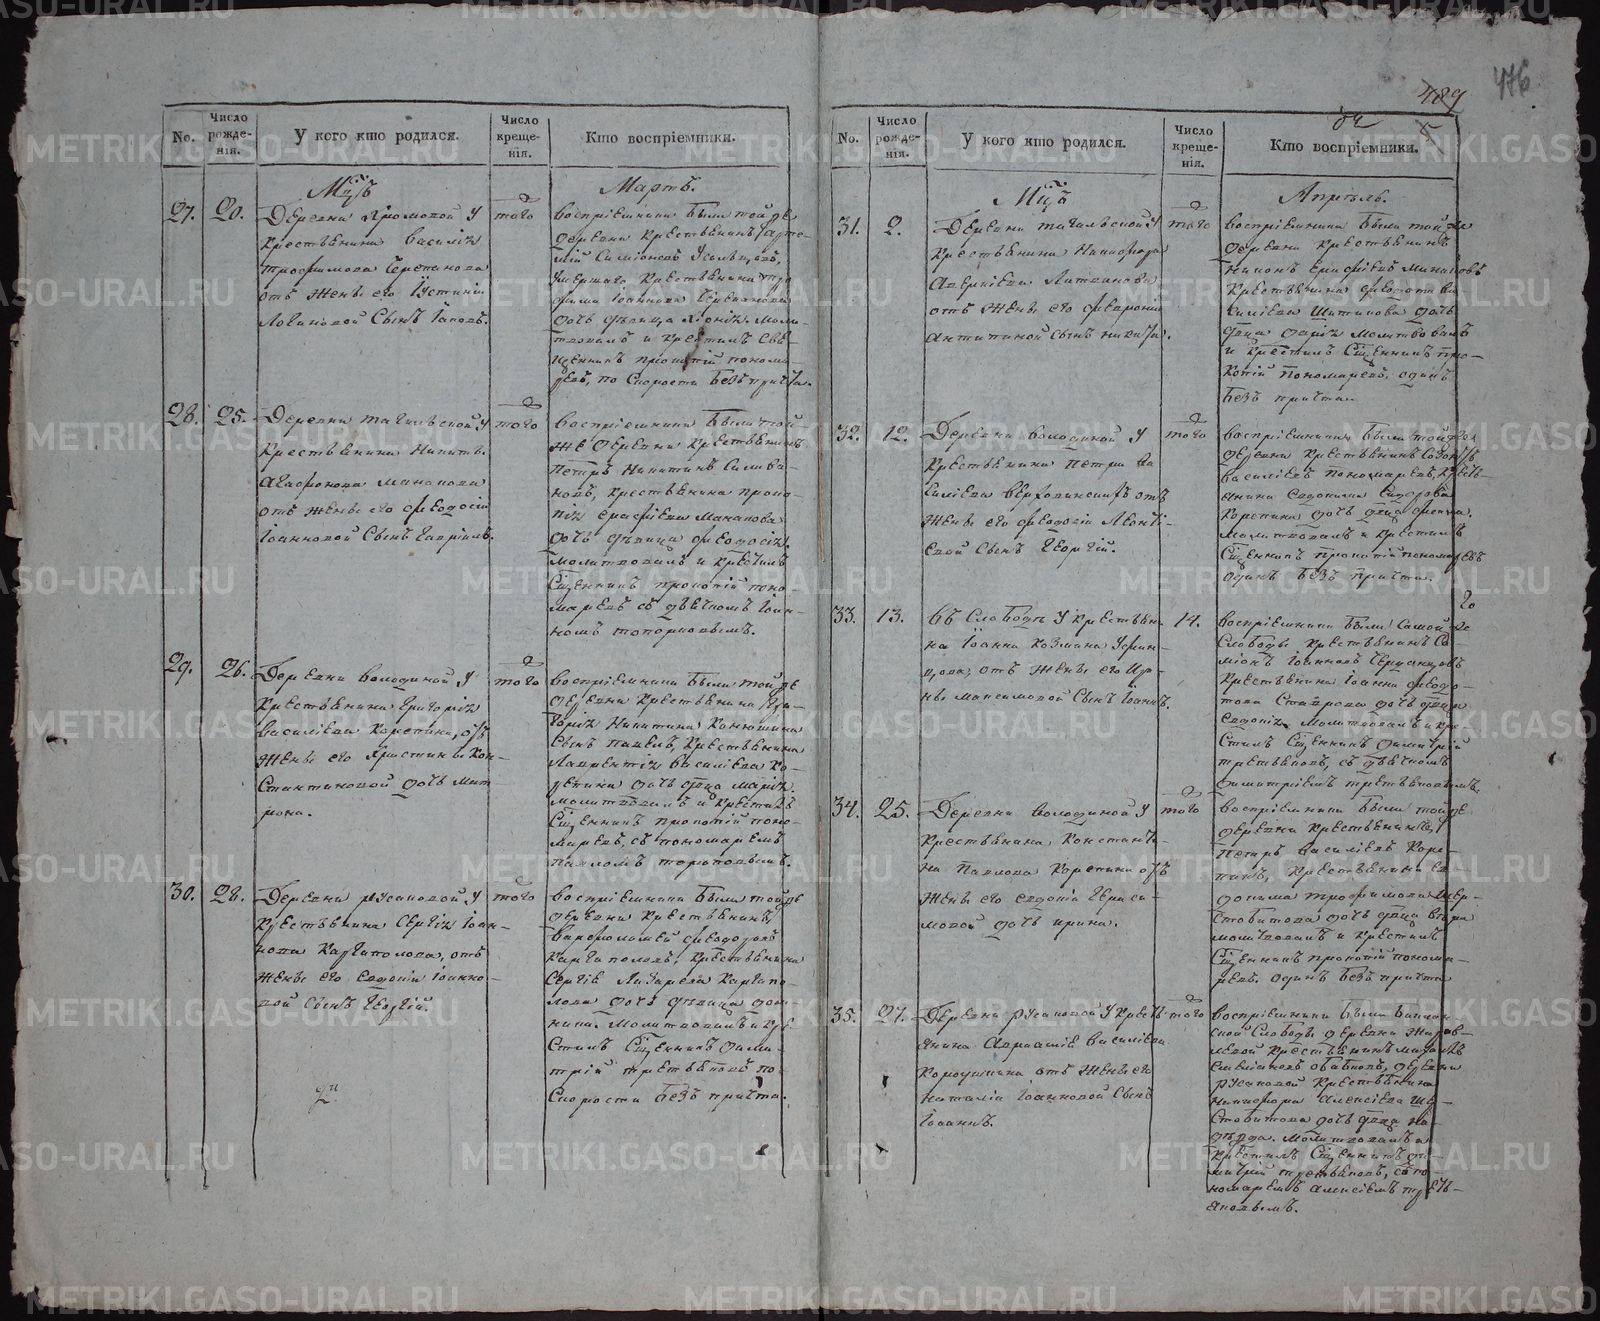 476
489
No.
Число рожде-нія.
У кого кто родился.
Число креще-нія.
Кто воспріемники.
Мцъ
Мартъ.
27.
20.
Деревни Хромовой у
крестьянина Василія
Трофимова Черепанова
отъ жены его Іустиніи
Логиновой сынъ Іаковъ.
того
воспріемники были той же
деревни крестьянинъ Арте-
мій Симіоновъ
умершаго крестьянина Тро
фима Іоаннова Черепанова
дочь дѣвица Хіонія. моли-
твовалъ и крестилъ свя-
щенникъ Прокопій Понома-
ревъ, по скорости безъ причта.
28.
25.
Деревни Тагильской у
крестьянина Никиты
Агафонова Манакова
отъ жены его Феодосіи
Іоанновой сынъ Гавріилъ.
того
воспріемники были той-
же деревни крестьянинъ
Петръ Никитинъ Селива-
новъ, крестьянина Проко-
пія Манакова
дочь дѣвица Феодосія.
молитвовалъ и крестилъ
Сщенникъ Прокопій Поно-
маревъ съ дьячкомъ Іоан-
номъ Топорковымъ.
29.
26.
Деревни Володиной у
крестьянина Григорія
Василіева Корепина, отъ
жены его Христины Кон-
стантиновой дочь Мат
рона.
того
воспріемники были той же
деревни крестьянина Гри-
горія Никитина Конюшина
сынъ Павелъ, крестьянина
Лаврентія Василіева Ко-
репина дочь двца Марія.
молитвовалъ и крестилъ
Сщенникъ Прокопій Поно-
маревъ, съ пономаремъ
Павломъ Терентьевымъ.
30.
28.
Деревни Русаковой у
крестьянина Сергія Іоан-
нова Каргаполова, отъ
жены его Евдокіи Іоанно-
вой сынъ Георгій.
того
воспріемники были той же
деревни крестьянинъ
Варфоломей Феодоровъ
Каргаполовъ, крестьянина
Сергія Лазарева Каргапо-
лова дочь дѣвица Дом-
нина. молитвовалъ и кре
стилъ Сщенникъ Дими-
трій Третьяковъ по
скорости безъ причта.
No.
Число рожде-нія.
У кого кто родился.
Число креще-нія.
Кто воспріемники.
Мца
Апрѣль.
31.
2.
Деревни Тагильской у
крестьянина Никифора
Аверкіева Литвинова
отъ жены его Февроніи
Антиповой сынъ Никита.
того
воспріемники были той же
деревни крестьянинъ
Никонъ Манаковъ
крестьянина Феодота Ва
силіева Шитикова дочь
двца Дарія молитвовалъ
и крестилъ Сщенникъ Про-
копій Пономаревъ, одинъ
безъ причта.
32.
12.
Деревни Володиной у
крестьянина Петра Ва
силіева Верхолинскихъ отъ
жены его Феодосіи Леонті-
евой сынъ Георгій.
того
воспріемники были той же
деревни крестьянинъ
Василіевъ Пономаревъ, кресть-
янина Сидорова
Корепина дочь двца
молитвовалъ и крестилъ
Сщенникъ Прокопій Пономаревъ
одинъ безъ причта.
33.
13.
въ Слободѣ у крестьяни-
на Іоанна Козмина
отъ жены его Ири-
ны Максимовой сынъ Іоаннъ.
14.
воспріемники были самой же
Слободы крестьянинъ Си-
міонъ Іоанновъ
крестьянина Іоанна Феодо-
това дочь двца
Евдокія. молитвовалъ и кре-
стилъ Сщенникъ Димитрій
Третьяковъ, съ дьячкомъ
Димитріемъ Третьяковымъ.
34.
25.
Деревни Володиной у
крестьянина Константи-
на Павлова Корепина отъ
жены его Евдокіи Гераси-
мовой дочь Ирина.
того
воспріемники были той же
деревни крестьянинъ
Петръ Василіевъ Коре-
пинъ, крестьянина Ев
докима Трофимова Шер-
стобитова дочь двца Вѣра
молитвовалъ и крестилъ
Сщенникъ Прокопій Понома-
ревъ. одинъ безъ причта
35.
27.
Деревни Русаковой у кресть-
янина Авраамія Василіева
отъ жены его
Наталіи Іоанновой сынъ
Іоаннъ.
того
воспріемники были
ской Слободы деревни Жирав-
левой крестьянинъ
Обабковъ, деревни
Русаковой крестьянина
Никифора Алексіева Шер-
стобитова дочь двца На-
дежда. молитвовалъ и
крестилъ Сщенникъ Ди-
митрій Третьяковъ, съ по-
номаремъ Алексіемъ Треть-
яковымъ.
METRIKI.GASO-URAL.RU